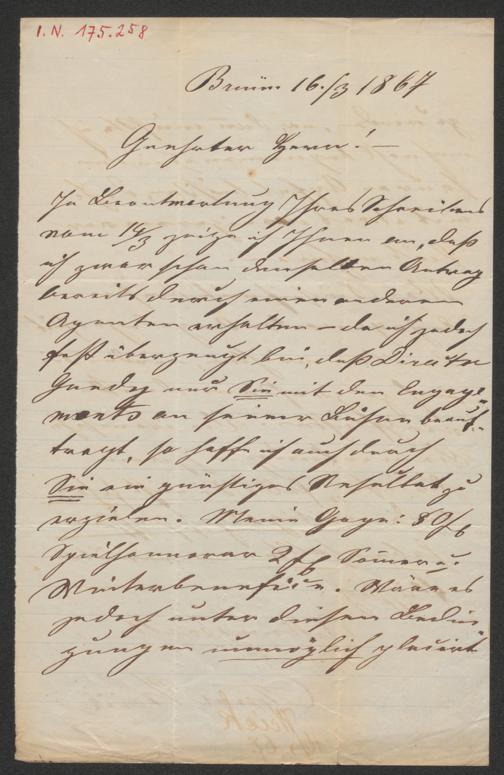 I.N. 175.258
Brünn 16./3 1867
Geehrter Herr! —
In Beantwortung Ihres Schreibens
vom 14/3 zeige ich Ihnen an, daß
ich zwar schon denselben Antrag
bereits durch einen anderen
Agenten erhalten – da ich jedoch
fest überzeugt bin, daß Director
nur Sie mit den Engage-
ments an seiner Bühne beauf-
tragt, so hoffe ich auch durch
Sie ein günstiges Resultat zu
erzielen. Meine Gage: 80/f
Spielhonorar 2/f Somer u.
Winterbenefice. Wäre es
jedoch unter diesen Bedin
gungen unmöglich placirt